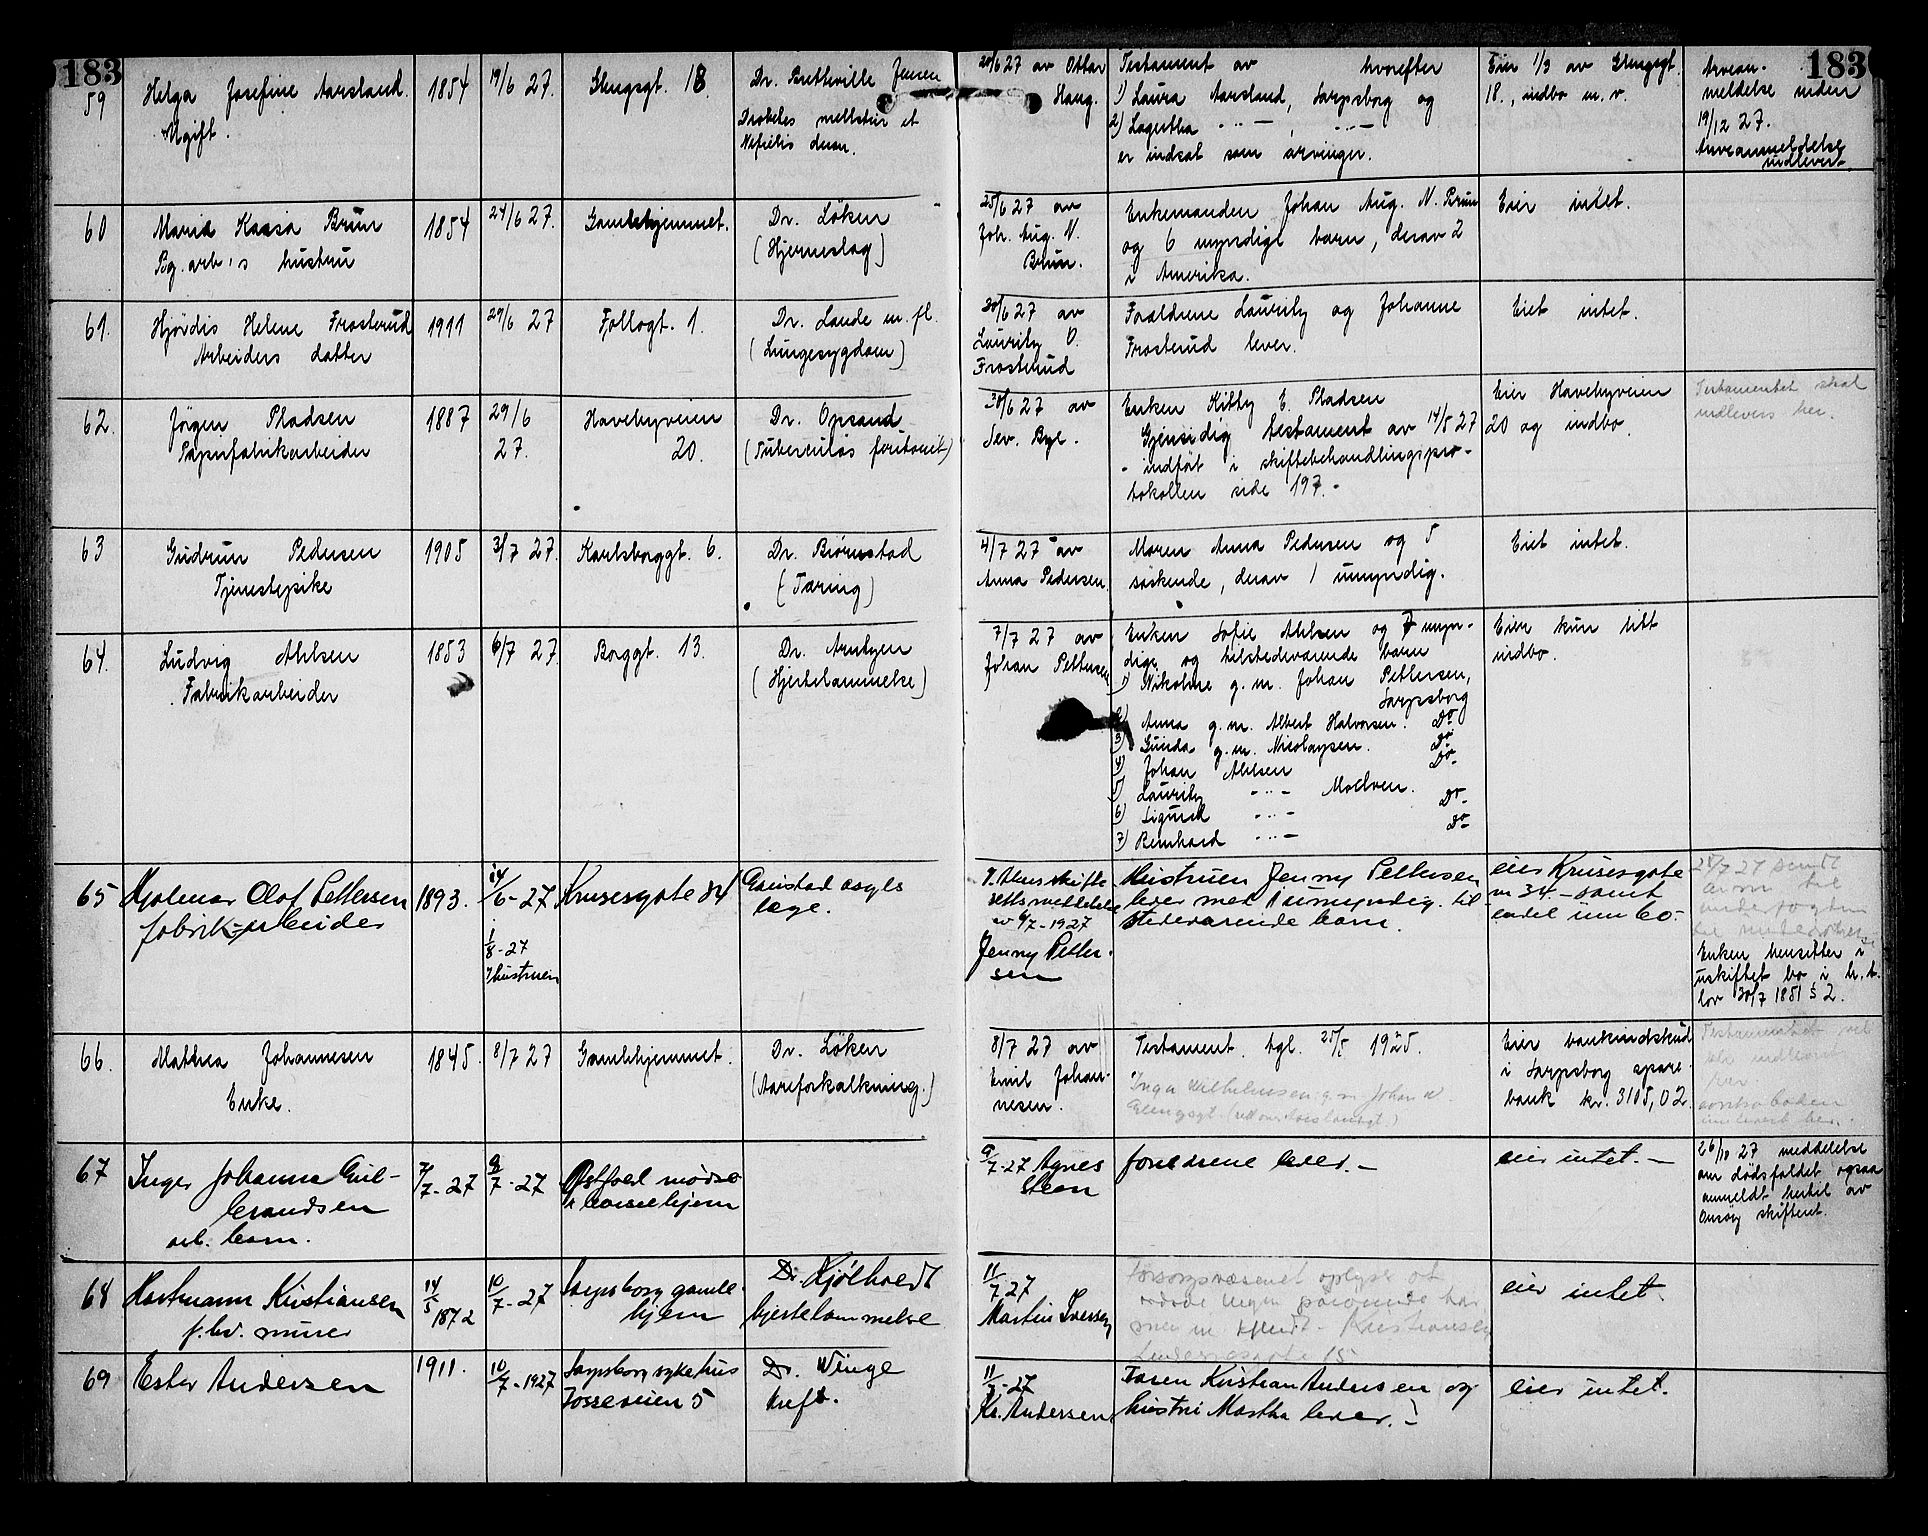 183
183
59
Helga Josefine Aarsland.
Ugift.
1854
19/6 27.
Glengsgt. 18.
Dr. Bretteville Jensen
Diabetes mellitus et
20/6 27 av Ottar
Haug.
Testament av hvorefter
1) Laura Aarsland, Sarpsborg og
2) Lagertha -"- , -"-
er indsat som arvinger.
Eier 1/3 av Glengsgt.
18., indbo m. v.
Arvean-
meldelse inden
19/12 27.
Arveanmeldelse
indlevert
60
Maria Kaisa Brun
Bg. arb's hustru
1854
24/6 27.
Gamlehjemmet.
Dr. Löken
(Hjerneslag)
25/6 27 av
Joh. Aug. N.
Brun.
Enkemanden Johan Aug. N. Brun
og 6 myndige barn, derav 2
i Amerika.
Eier intet.
61.
Hjördis Helene Frosterud
Arbeiders datter
1911
29/6 27
Follogt. 1.
Dr. Lande m. fl.
(Lungesygdom)
30/6 27 av
Lauritz O.
Frosterud
Forældrene Lauritz og Johanne
Frosterud lever.
Eiet intet.
62.
Jörgen Pladsen
Papirfabrikarbeider
1887
29/6
27.
Havebyveien
20.
Dr. Opsand
(Tuberculös peritonit)
30/6 27 av
Sev. Bye.
Enken Kitty E. Pladsen
Gjensidig testament av 14/5 27
- indfört i skiftebehandlingspro-
tokollen side 197.-
Eier Havebyveien
20 og indbo.
Testamentet skal
indlevers her.
63
Gudrun Pedersen
Tjenestepike
1905
3/7 27.
Karlsborggt. 6.
Dr. Björnstad
(Tæring)
4/7 27 av
Anna Pedersen
Moren Anna Pedersen og 5
söskende, derav 1 umyndig.
Eiet intet.
64.
Ludvig Ahlsen
Fabrikarbeider
1853
6/7 27.
Borggt. 13.
Dr. Arntzen
(Hjertelammelse)
7/7 27 av
Johan Pettersen
Enken Sofie Ahlsen og 7 myn-
dige og tilstedeværende barn
1) Nikoline g. m. Johan Pettersen,
Sarpsborg
2) Anna g. m. Albert Halvorsen. Do
3) Gunda g. m. Nicolaysen. Do
4) Johan Ahlsen Do-
5) Lauritz -"- Moelven.
6) Sigurd -"- Do-
7) Reinhard -"- Do-
Eier kun litt
indbo.
65
Hjalmar Olaf Pettersen
fabrik-arbeider
1893.
24/6-27
1/8-27
Hustruen
Krusesgate 34
Gaustad asyls
læge.
skifte
retts meddelelse
av 4/7-1927
Jenny Petter-
sen
Hustruen Jenny Pettersen
lever med 1 umyndig til
stedeværende barn.
eier Krusesgate
nr 34.- samt
endel innbo-
Enken hensitter i
uskiftet bo i h. t.
lov 30/7 1851 § 2.
66.
Mathea Johannesen
Enke.
1845.
8/7 27
Gamlehjemmet.
Dr. Löken
(Aareforkalkning.)
8/7 27 av
Emil Johan-
nesen.
Testament. tgl. 25/5 1925.
Inga Wilhelmsen g. m. Johan W.
Glengsgt.
Eier bankindskud
i Sarpsborg spare-
bank kr. 3105,02
Testamentet
67
Inger Johanne Gul-
brandsen
arb. barn.
7/7-27
9/7-27
Østfold mødre
& barnehjem
9/7-27 Agnes
Steen
foreldrene lever.-
eier intet.-
26/10 27 meddelelse
om dödsfaldet ogsaa
anmeldt hertil av
Onsöy skifteret.
68
Hartmann Kristiansen
f. hv. murer
14/5 1872
10/7-27
Sarpsborg gamle-
hjem
Dr. Kjølholdt
hjertelammelse
11/7 27
Martin Iversen
Forsorgsvæsenet oplyser at
Kristiansen
15
eier intet.
69
Ester Andersen
1911.
10/7-1927
Sarpsborg sykehus
Fosseveien 5
Dr. Winge
Kreft.
11/7-27
Kr. Andersen
Faren Kristian Andersen og
hustru Martha lever.-
eier intet.